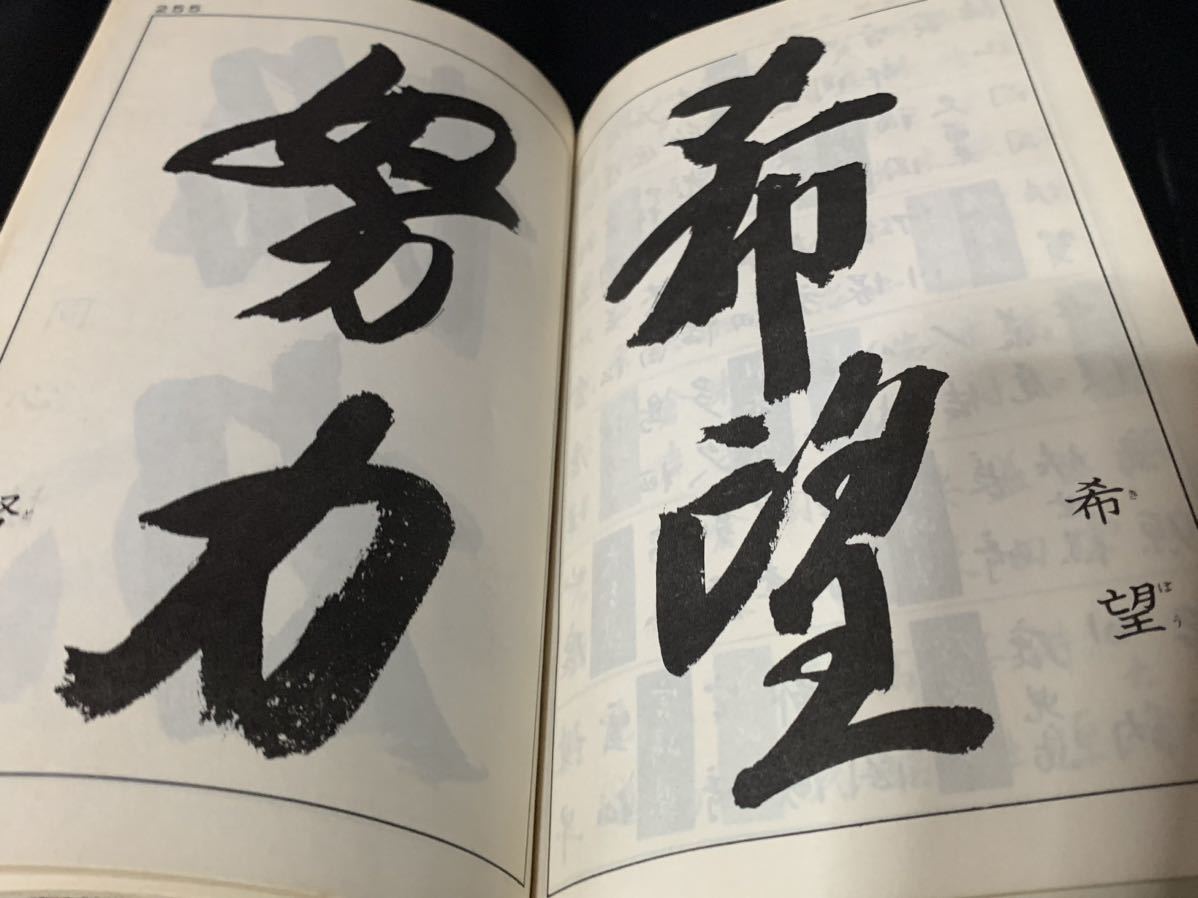 希望
希き
望ぼう
255
努力